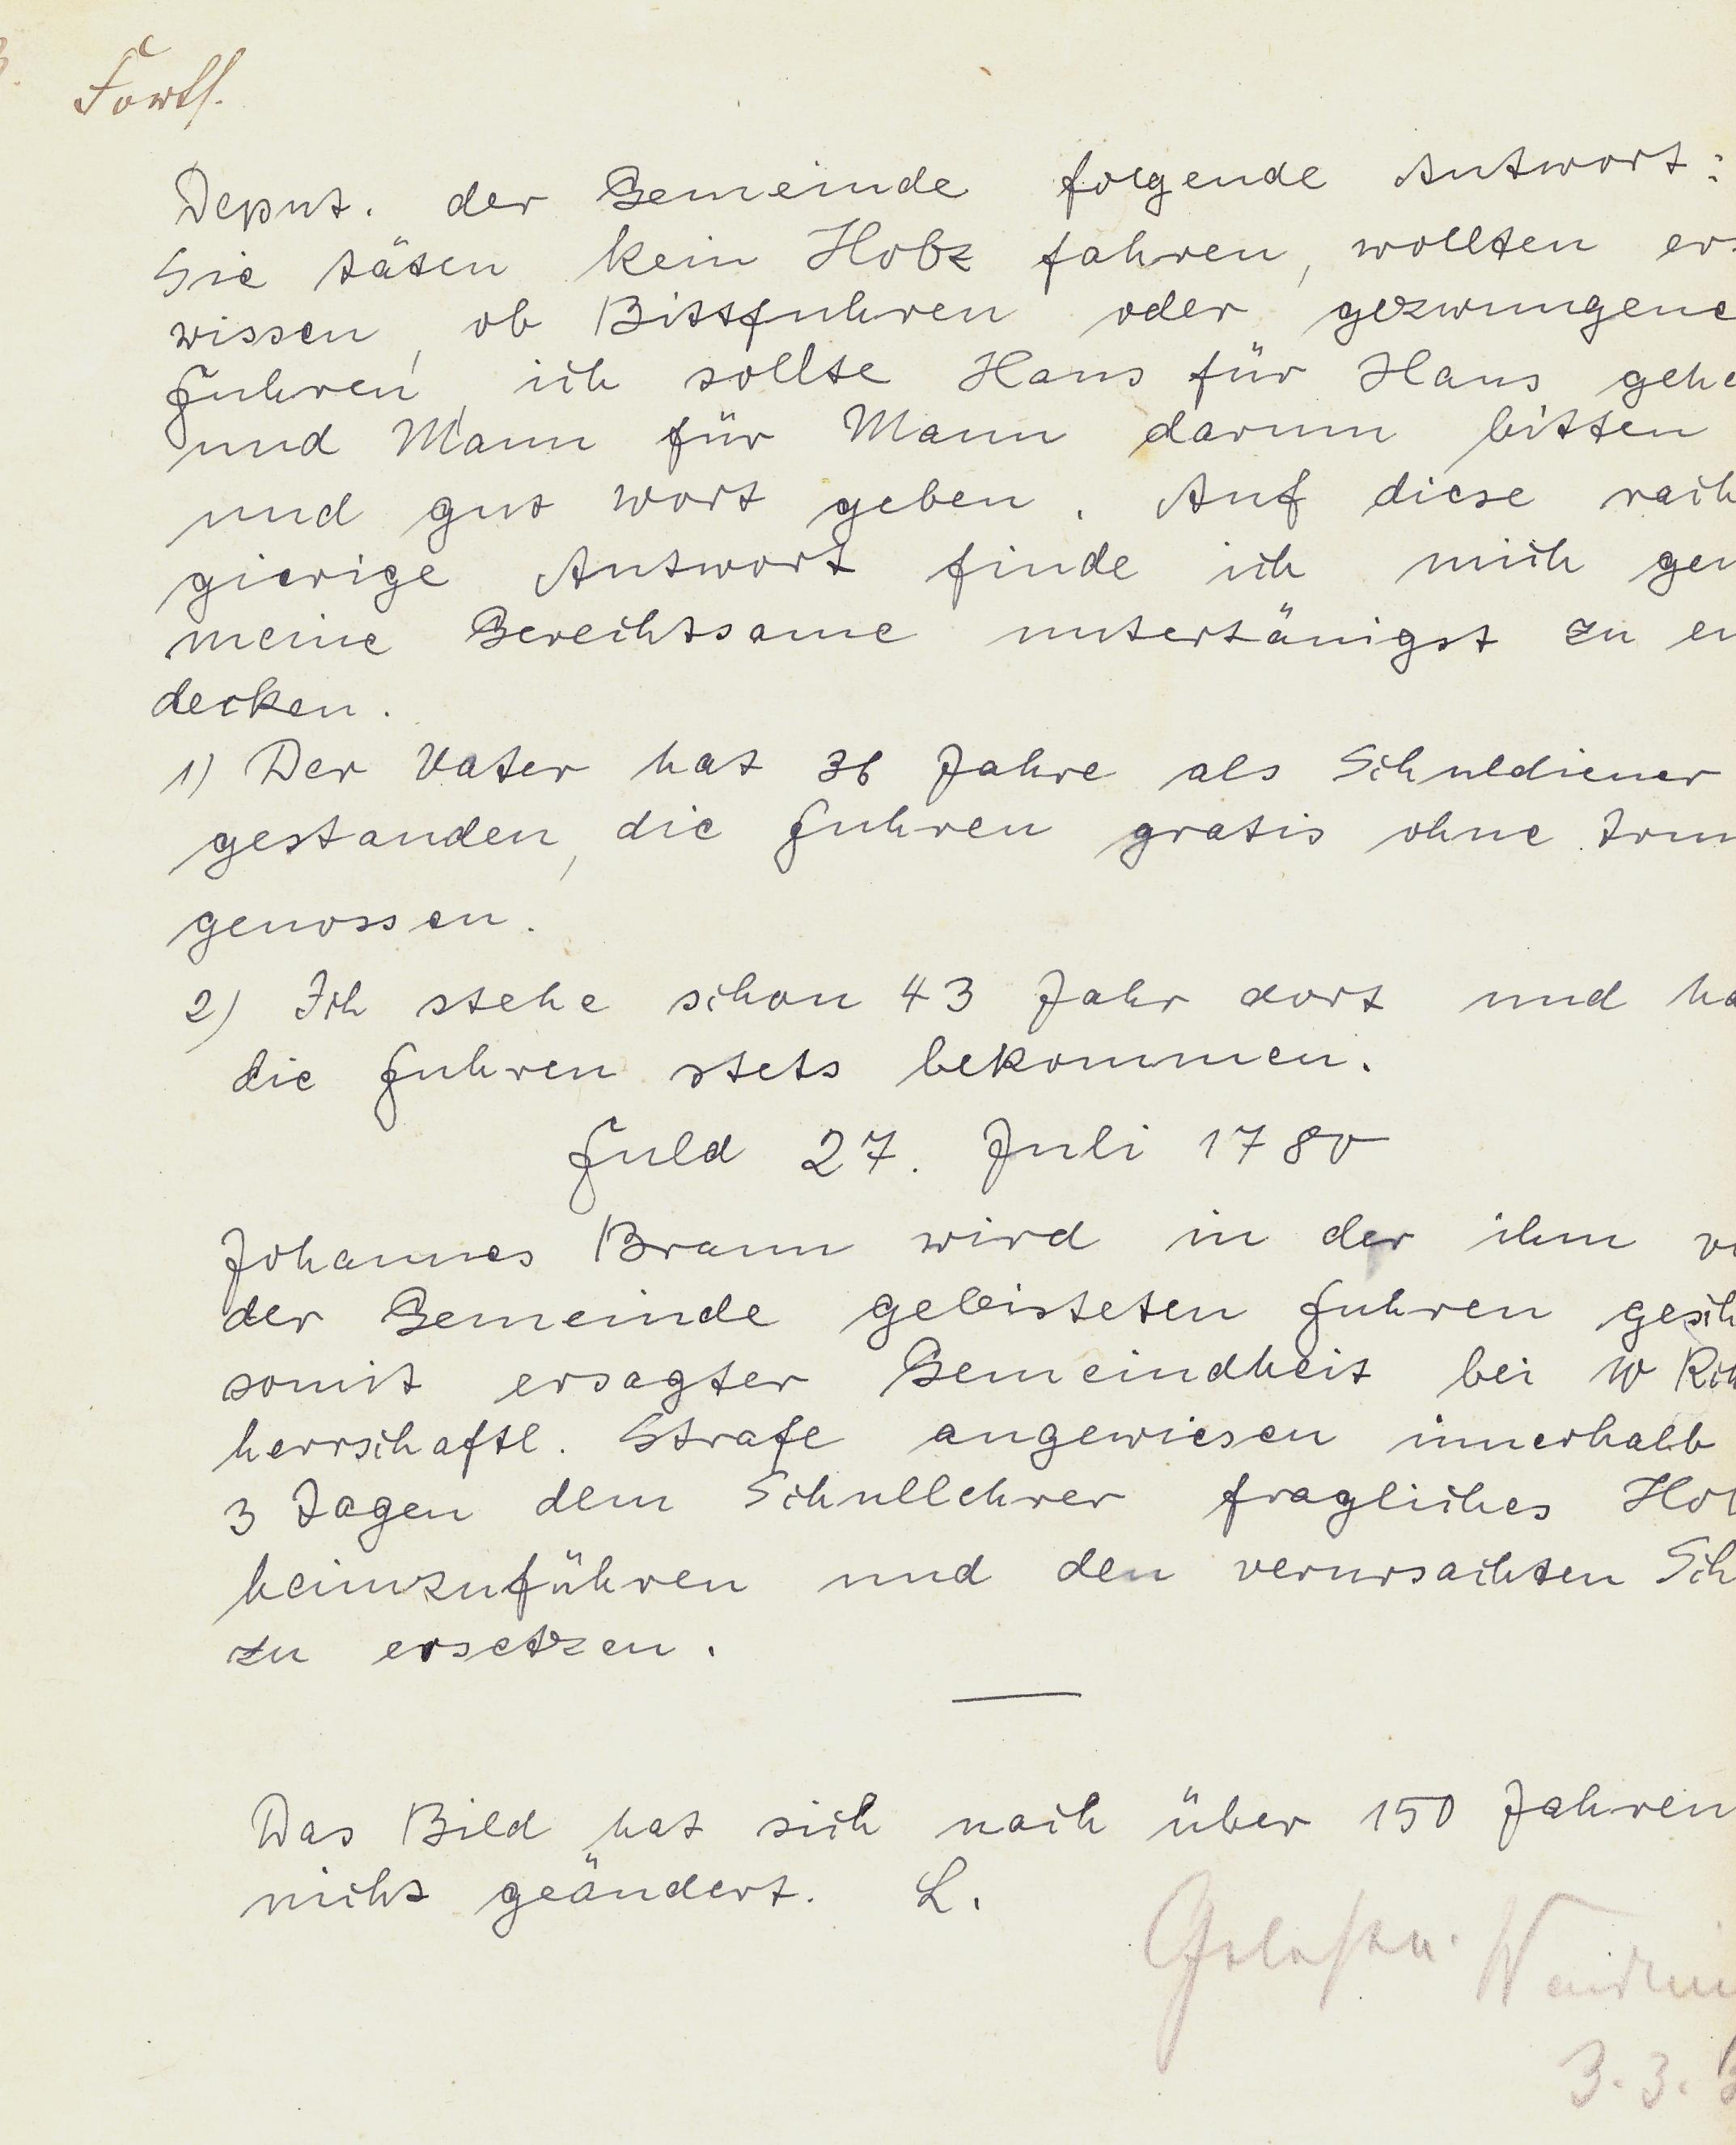 Forts.
Deput. der Gemeinde folgende Antwort:
Sie täten kein Holz fahren, wollten ers
wissen, ob Bittfuhren oder gezwungene
Fuhren, ich sollte Haus für Haus gehe
und Mann für Mann darum bitten
und gut wort geben. Auf diese rach
gierige Antwort finde ich mich gen
meine Gerechtsame untertänigst zu en
decken.
1) Der Vater hat 36 Jahre als Schuldiener
gestanden, die Fuhren gratis ohne Trun
genossen.
2) Ich stehe schon 43 Jahr dort und ha
die Fuhren stets bekommen.
Fuld 27. Juli 1780
Johannes Braun wird in der ihm vo
der Gemeinde geleisteten Fuhren gesch
somit ersagter Gemeindheit bei 10 Rth
herrschaftl. Strafe angewiesen innerhalb
3 Tagen dem Schullehrer fragliches Hol
heimzuführen und den verursachten Sch
zu ersetzen.
Das Bild hat sich nach über 150 Jahren
nicht geändert. L.
3.3.3